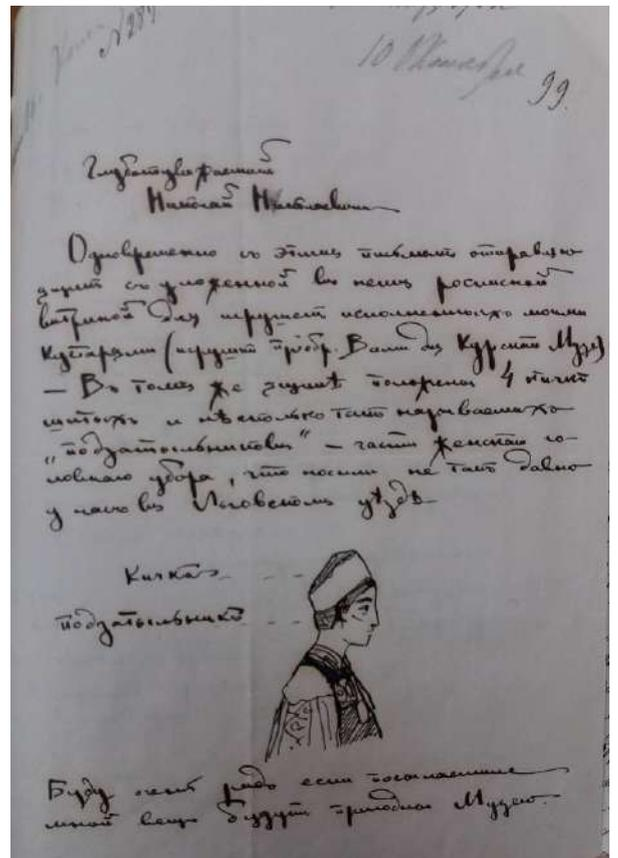 № 289
10 Октября
99.
Глубокоуважаемый
Николай Николаевич
Одновременно съ этимъ письмомъ отправляю
ящикъ съ уложенной въ немъ
витриной для игрушекъ исполненныхъ моими
кустарями (игрушки пріобр. Вами для Курскаго Музея)
— Въ томъ же ящикѣ положены 4 кички
шитыхъ и нѣсколько такъ называемыхъ
„подзатыльниковъ“ — части женскаго го-
ловнаго убора, что носили не такъ давно
у насъ въ Льговскомъ уѣздѣ
Кичка
подзатыльникъ
Буду очень радъ если посылаемые
мной вещи будутъ пригодны Музею.